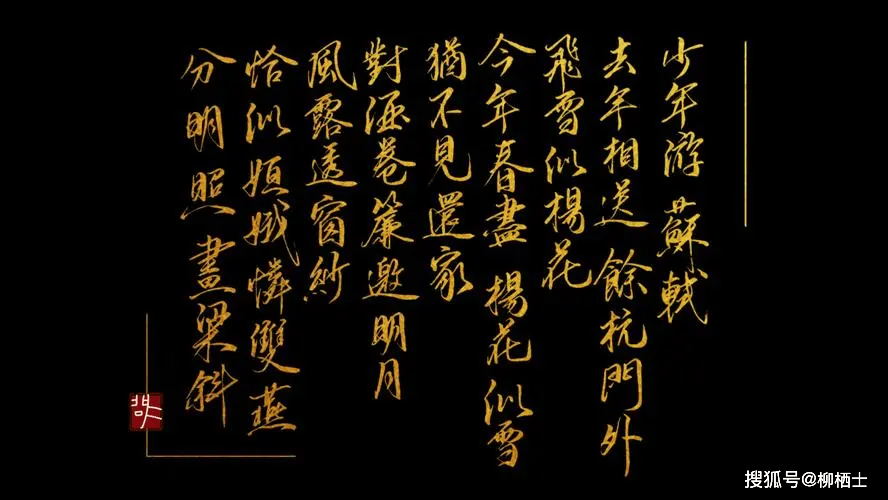 少年游 蘇軾
去年相送 餘杭門外
飛雪似楊花
今年春盡 楊花似雪
猶不見還家
對酒卷簾邀明月
風露透窗紗
恰似姮娥憐雙燕
分明照 畫梁斜
搜狐号@柳栖士